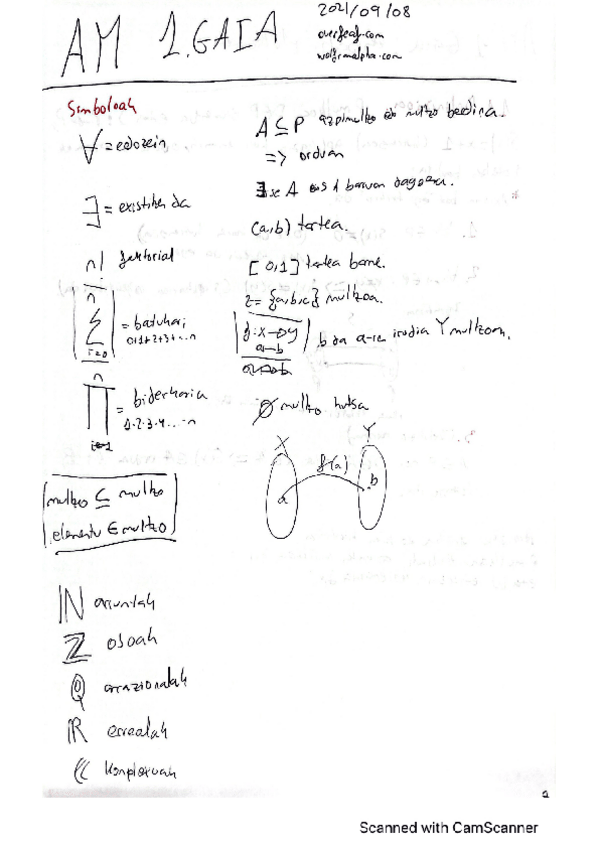 AM 1.GAIA
2021/09/08
overleaf.com
wolframalpha.com
Sinboloak
∀ = edozein
∃ = existitzen da
n! faktorial
n
∑ = batukari
i=0 0+1+2+3+...n
n
∏ = biderkaria
i=1 1·2·3·4...·n
multzo ⊆ multzo
elementu ∈ multzo
ℕ arruntak
ℤ osoak
ℚ arrazionalak
ℝ errealak
ℂ konplexuak
A ⊆ P azpimultzo edo multzo berdina.
=> orduan
∃ x ∈ A
(a,b) tartea.
[0,1] tartea barne.
z = {a,b,c} multzoa.
f: x → y
a → b
b da a-ren irudia Y multzoan.
∅ multzo hutsa
X Y
f(a)
a b
Scanned with CamScanner